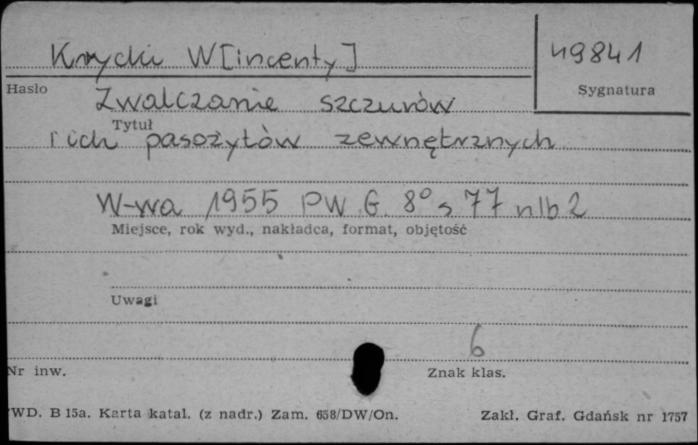 Krycki W[incenty]
49841
Hasło
Sygnatura
Zwalczanie szczurów
Tytuł
i ich pasożytów zewnętrznych
W-wa 1955 PW.G. 8° s 77 nlb 2
Miejsce, rok wyd., nakładca, format, objętość
Uwagi
6
Nr inw.
Znak klas.
WD. B 15a. Karta katal. (z nadr.) Zam. 658/DW/On.
Zakł. Graf. Gdańsk nr 1757